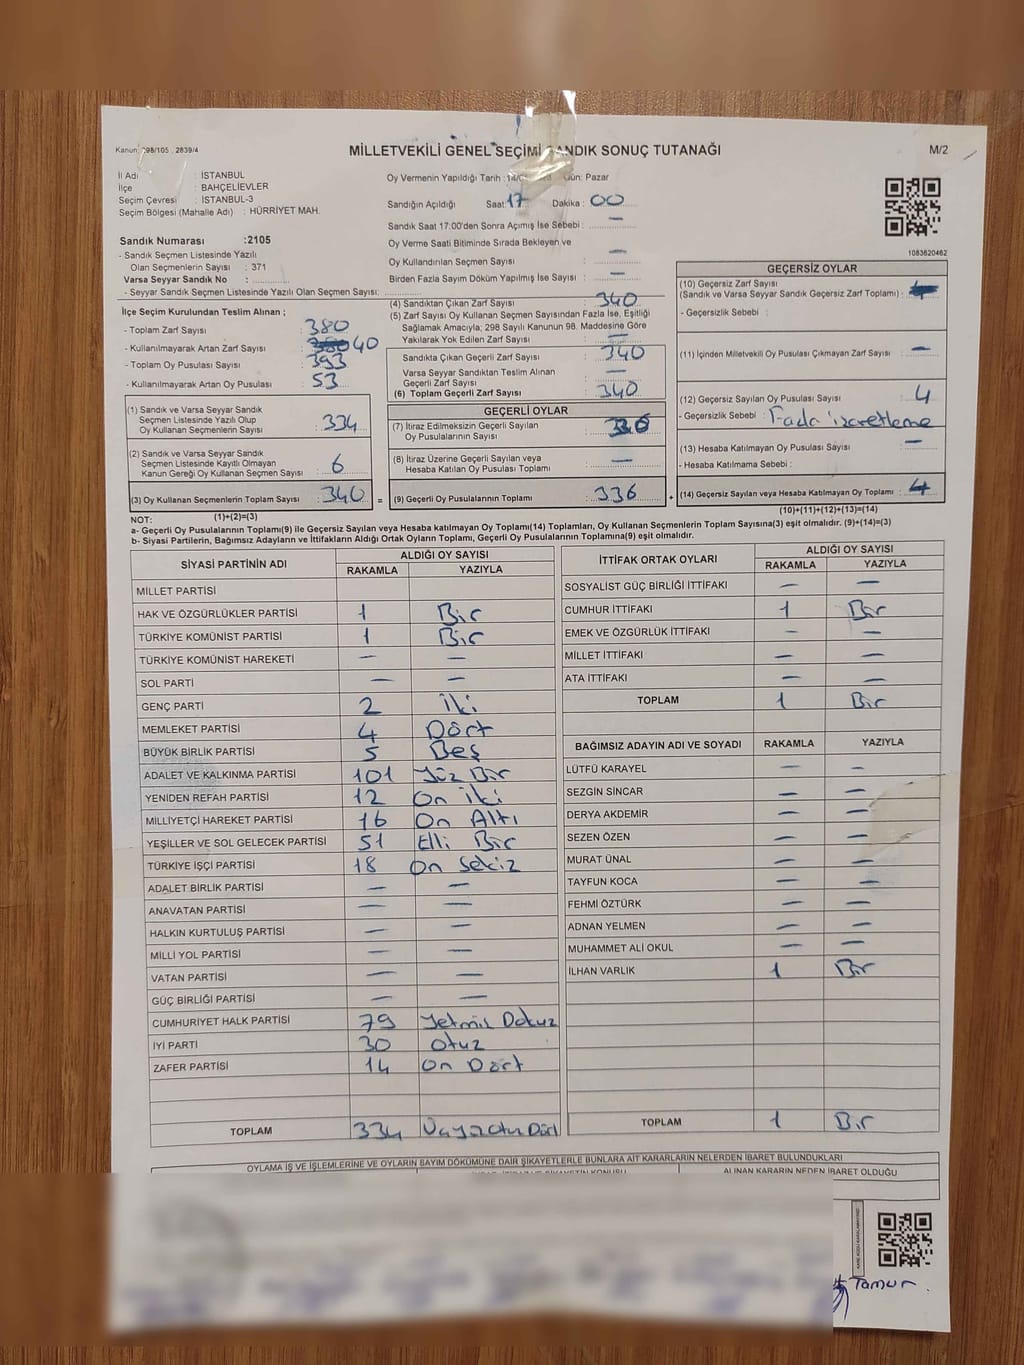 Kanun: 298/105 2839/4
MİLLETVEKİLİ GENEL SEÇİMİ SANDIK SONUÇ TUTANAĞI
M/2
İl Adı : İSTANBUL
İlçe : BAHÇELİEVLER
Seçim Çevresi : İSTANBUL-3
Seçim Bölgesi (Mahalle Adı) : HÜRRİYET MAH.
Sandık Numarası :2105
- Sandık Seçmen Listesinde Yazılı
Olan Seçmenlerin Sayısı : 371
Varsa Seyyar Sandık No :
- Seyyar Sandık Seçmen Listesinde Yazılı Olan Seçmen Sayısı:
Oy Vermenin Yapıldığı Tarih : Gün: Pazar
Sandığın Açıldığı Saat: 17 Dakika : 00
Sandık Saat 17:00'den Sonra Açımış İse Sebebi : —
Oy Verme Saati Bitiminde Sırada Bekleyen ve
Oy Kullandırılan Seçmen Sayısı : —
Birden Fazla Sayım Döküm Yapılmış İse Sayısı : —
1083620462
İlçe Seçim Kurulundan Teslim Alınan ;
- Toplam Zarf Sayısı : 380
- Kullanılmayarak Artan Zarf Sayısı : 40
- Toplam Oy Pusulası Sayısı : 393
- Kullanılmayarak Artan Oy Pusulası : 53
(1) Sandık ve Varsa Seyyar Sandık
Seçmen Listesinde Yazılı Olup
Oy Kullanan Seçmenlerin Sayısı : 334
(2) Sandık ve Varsa Seyyar Sandık
Seçmen Listesinde Kayıtlı Olmayan
Kanun Gereği Oy Kullanan Seçmen Sayısı : 6
(3) Oy Kullanan Seçmenlerin Toplam Sayısı : 340 =
(4) Sandıktan Çıkan Zarf Sayısı : 340
(5) Zarf Sayısı Oy Kullanan Seçmen Sayısından Fazla İse, Eşitliği
Sağlamak Amacıyla; 298 Sayılı Kanunun 98. Maddesine Göre
Yakılarak Yok Edilen Zarf Sayısı : —
Sandıkta Çıkan Geçerli Zarf Sayısı : 340
Varsa Seyyar Sandıktan Teslim Alınan
Geçerli Zarf Sayısı : —
(6) Toplam Geçerli Zarf Sayısı : 340
GEÇERLİ OYLAR
(7) İtiraz Edilmeksizin Geçerli Sayılan
Oy Pusulalarının Sayısı : 336
(8) İtiraz Üzerine Geçerli Sayılan veya
Hesaba Katılan Oy Pusulası Toplamı : —
(9) Geçerli Oy Pusulalarının Toplamı : 336 +
GEÇERSİZ OYLAR
(10) Geçersiz Zarf Sayısı
(Sandık ve Varsa Seyyar Sandık Geçersiz Zarf Toplamı) :
- Geçersizlik Sebebi :
(11) İçinden Milletvekili Oy Pusulası Çıkmayan Zarf Sayısı : —
(12) Geçersiz Sayılan Oy Pusulası Sayısı : 4
- Geçersizlik Sebebi : işaretleme
(13) Hesaba Katılmayan Oy Pusulası Sayısı : —
- Hesaba Katılmama Sebebi :
(14) Geçersiz Sayılan veya Hesaba Katılmayan Oy Toplamı : 4
(1)+(2)=(3)
(10)+(11)+(12)+(13)=(14)
NOT:
a- Geçerli Oy Pusulalarının Toplamı(9) ile Geçersiz Sayılan veya Hesaba katılmayan Oy Toplamı(14) Toplamları, Oy Kullanan Seçmenlerin Toplam Sayısına(3) eşit olmalıdır. (9)+(14)=(3)
b- Siyasi Partilerin, Bağımsız Adayların ve İttifakların Aldığı Oyların Toplamı, Geçerli Oy Pusulalarının Toplamına(9) eşit olmalıdır.
SİYASİ PARTİNİN ADI ALDIĞI OY SAYISI
RAKAMLA YAZIYLA
MİLLET PARTİSİ
HAK VE ÖZGÜRLÜKLER PARTİSİ 1 Bir
TÜRKİYE KOMÜNİST PARTİSİ 1 Bir
TÜRKİYE KOMÜNİST HAREKETİ — —
SOL PARTİ — —
GENÇ PARTİ 2 İki
MEMLEKET PARTİSİ 4 Dört
BÜYÜK BİRLİK PARTİSİ 5 Beş
ADALET VE KALKINMA PARTİSİ 101 Yüz Bir
YENİDEN REFAH PARTİSİ 12 On İki
MİLLİYETÇİ HAREKET PARTİSİ 16 On Altı
YEŞİLLER VE SOL GELECEK PARTİSİ 51 Elli Bir
TÜRKİYE İŞÇİ PARTİSİ 18 On Sekiz
ADALET BİRLİK PARTİSİ — —
ANAVATAN PARTİSİ — —
HALKIN KURTULUŞ PARTİSİ — —
MİLLİ YOL PARTİSİ — —
VATAN PARTİSİ — —
GÜÇ BİRLİĞİ PARTİSİ — —
CUMHURİYET HALK PARTİSİ 79 Yetmiş Dokuz
İYİ PARTİ 30 Otuz
ZAFER PARTİSİ 14 On Dört
TOPLAM 334
İTTİFAK ORTAK OYLARI ALDIĞI OY SAYISI
RAKAMLA YAZIYLA
SOSYALİST GÜÇ BİRLİĞİ İTTİFAKI — —
CUMHUR İTTİFAKI 1 Bir
EMEK VE ÖZGÜRLÜK İTTİFAKI — —
MİLLET İTTİFAKI — —
ATA İTTİFAKI — —
TOPLAM 1 Bir
BAĞIMSIZ ADAYIN ADI VE SOYADI RAKAMLA YAZIYLA
LÜTFÜ KARAYEL — —
SEZGİN SİNCAR — —
DERYA AKDEMİR — —
SEZEN ÖZEN — —
MURAT ÜNAL — —
TAYFUN KOCA — —
FEHMİ ÖZTÜRK — —
ADNAN YELMEN — —
MUHAMMET ALİ OKUL — —
İLHAN VARLIK 1 Bir
TOPLAM 1 Bir
OYLAMA İŞ VE İŞLEMLERİNE VE OYLARIN SAYIM DÖKÜMÜNE DAİR ŞİKAYETLERLE BUNLARA AİT KARARLARIN NELERDEN İBARET BULUNDUKLARI
ALINAN KARARIN NEDEN İBARET OLDUĞU
Tamur